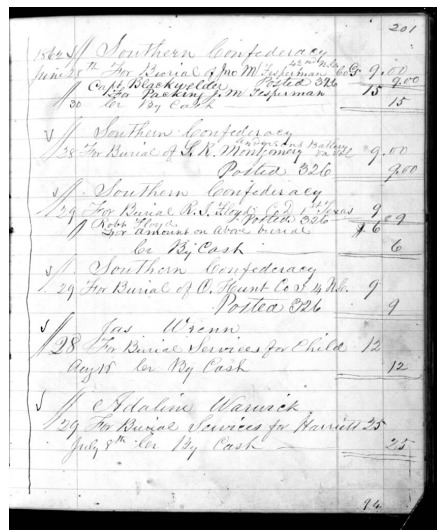 201
1864 Southern Confederacy
June 28th For Burial of Jno M Fesperman 42nd N.C. Co G 9.00
Capt Blackwelder Posted 326 9.00
For Packing J. M Fesperman 15
30 Cr By Cash 15
Southern Confederacy
28 For Burial of S. R. Montgomery Battery 9.00
Posted 326 9.00
Southern Confederacy
29 For Burial R. J. Floyd 1st Texas 9
Robt Floyd Posted 326 9
For amount on above burial 6
Cr By Cash 6
Southern Confederacy
29 For Burial of C. Hunt Co I 4 N.C. 9
Posted 326 9
Jas Wrenn
28 For Burial Services for Child 12
Aug 15 Cr By Cash 12
Adaline Warwick
29 For Burial Services for Harriett 25
July 8th Cr By Cash 25
94